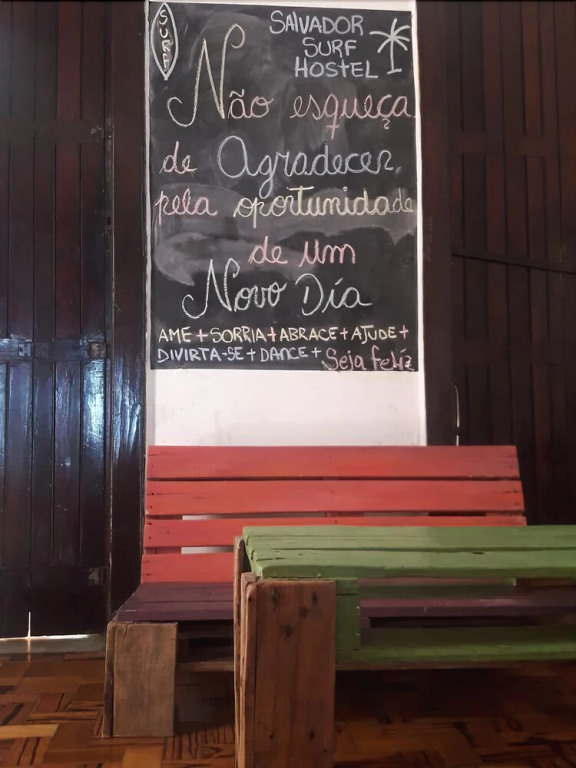 SURF
SALVADOR
SURF
HOSTEL
Não esqueça
de Agradecer
pela oportunidade
de um
Novo Día
AME + SORRIA + ABRACE + AJUDE +
DIVIRTA-SE + DANCE + Seja feliz